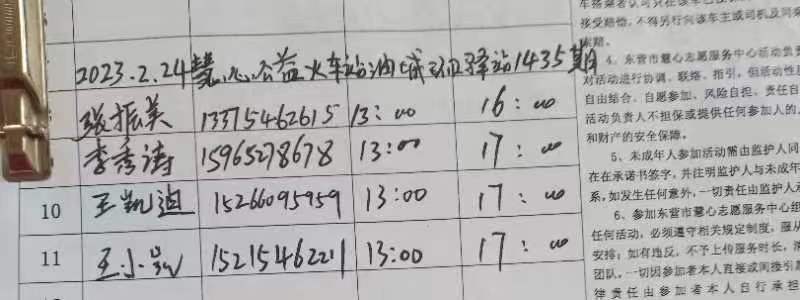 2023.2.24慧心公益火车站油城 驿站1435期
张振美 13375462615 13:00 16:00
李秀涛 15965278678 13:00 17:00
10 王凯迪 15266095959 13:00 17:00
11 王小 15215462221 13:00 17:00
接受赔偿，不得另行向该车主或司机及同乘
索赔。
4、东营市慧心志愿服务中心活动负责
对活动进行协调、联络、指引，但活动性质
自由结合、自愿参加、风险自担、责任自
活动负责人不担保或提供任何参加人的人
和财产的安全保障。
5、未成年人参加活动需由监护人同
在在承诺书签字，并注明监护人与未成年
系，如发生任何意外，一切责任由监护人承
6、参加东营市慧心志愿服务中心组
任何活动，必须遵守相关规定制度，服从
安排；如有违反，不予上传服务时长，清
团队。一切因参加者本人直接或间接引
律责任由参加者本人自行承担